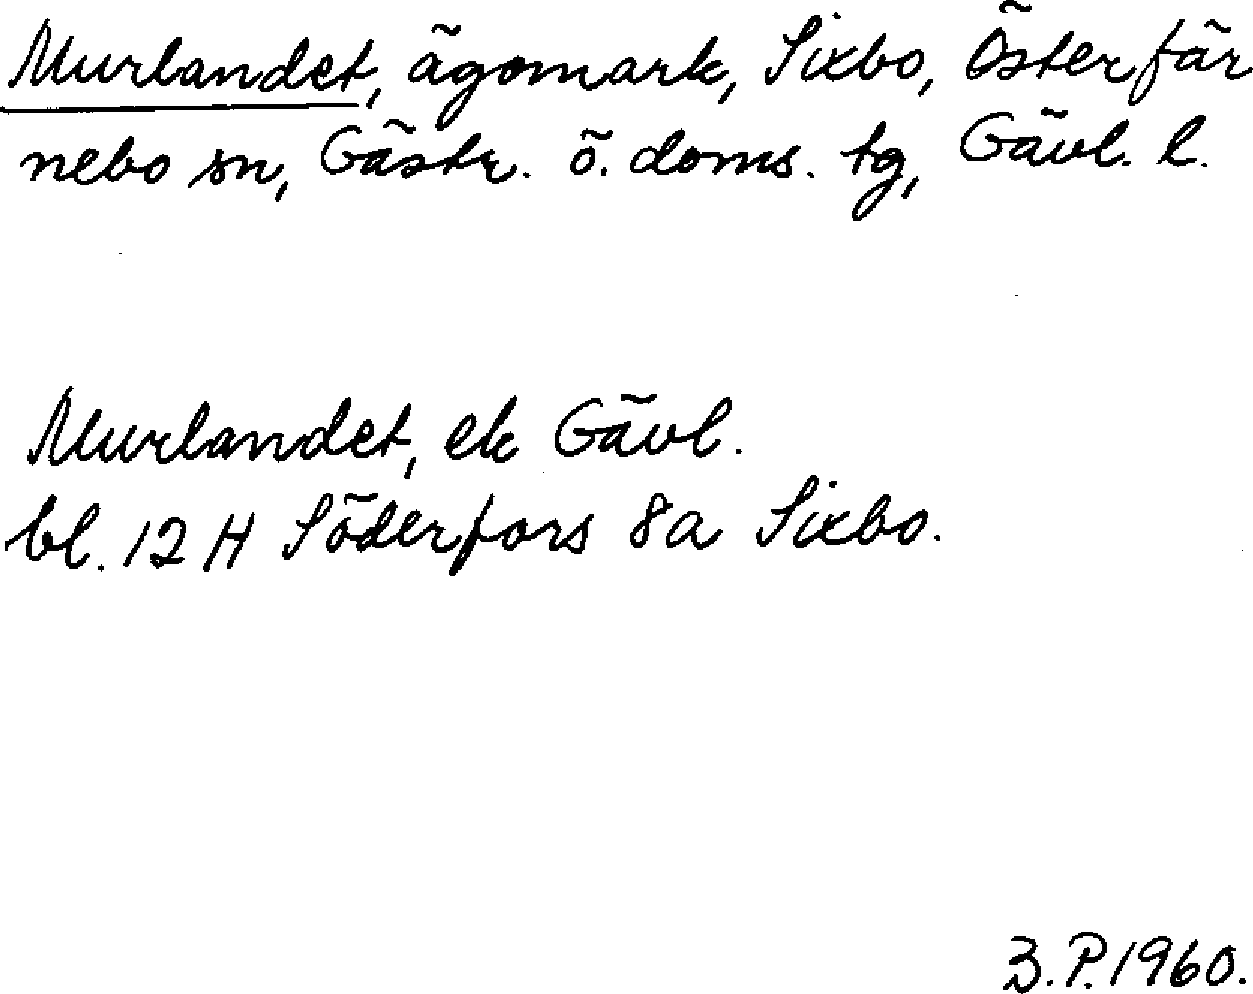 Murlandet, ägomark, Sixbo, Österfär
nebo sn, Gästr. ö. doms. tg, Gävl. l.
Murlandet, ek Gävl.
bl. 12 H Söderfors 8a Sixbo.
B.P. 1960.